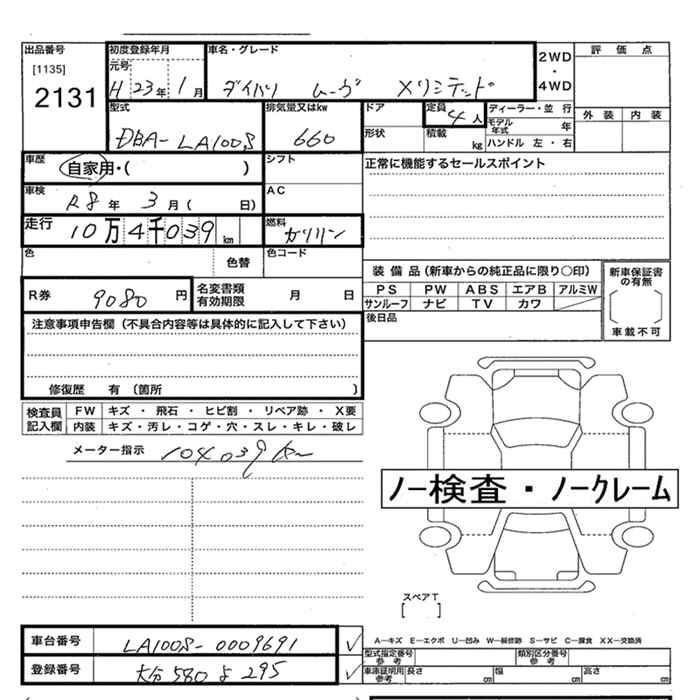 出品番号
[1135]
2131
初度登録年月
元号
H 23年 1月
車名・グレード
ダイハツ ムーヴ Xリミテッド
2WD
・
4WD
評価点
外装 内装
型式
DBA-LA100S
排気量又はkw
660
ドア
形状
定員
4人
積載
kg
ディーラー・並行
モデル年式 年
ハンドル 左・右
車歴
自家用・( )
シフト
正常に機能するセールスポイント
車検
R8年 3月( 日)
AC
走行
10万4千039km
燃料
ガソリン
色
色替
色コード
装備品(新車からの純正品に限り○印)
PS PW ABS エアB アルミW
サンルーフ ナビ TV カワ
新車保証書の有無
車載不可
R券
9080円
名変書類有効期限
月 日
後日品
注意事項申告欄(不具合内容等は具体的に記入して下さい)
修復歴 有(箇所 )
検査員記入欄
FW キズ・飛石・ヒビ割・リペア跡・X要
内装 キズ・汚レ・コゲ・穴・スレ・キレ・破レ
メーター指示 104039km
ノー検査・ノークレーム
スペアT
[ ]
車台番号
LA100S-0009691
A―キズ E―エクボ U―凹み W―補修跡 S―サビ C―腐食 XX―交換済
登録番号
大分 580 よ 295
型式指定番号
参考
類別区分番号
参考
車庫証明用
参考
長さ cm 幅 cm 高さ cm